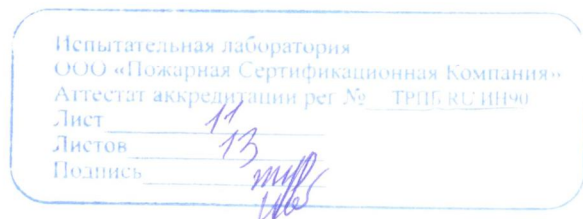 Испытательная лаборатория
ООО «Пожарная Сертификационная Компания»
Аттестат аккредитации рег № ТРПБ.RU.ИН90
Лист 11
Листов 13
Подпись